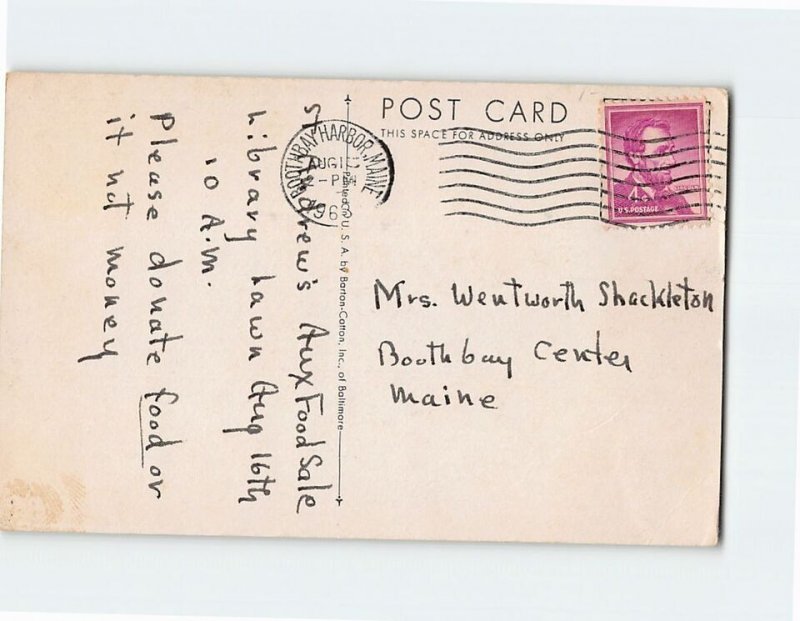 POST CARD
THIS SPACE FOR ADDRESS ONLY
BOOTHBAY HARBOR, MAINE
AUG
PM
196
4¢
U.S. POSTAGE
Mrs. Wentworth Shackleton
Boothbay Center
Maine
Printed in U. S. A. by Barton-Cotton, Inc., of Baltimore
St Andrew's Aux Food Sale
Library Lawn Aug 16th
10 A.M.
Please donate food or
if not money